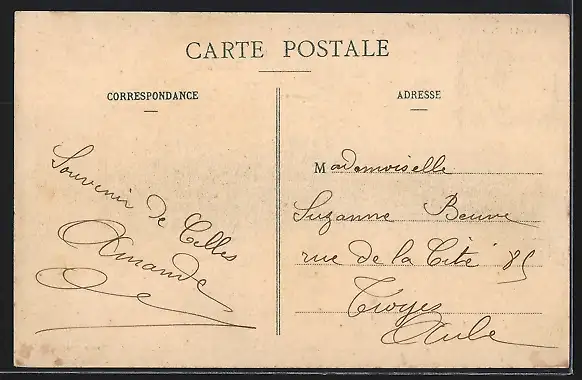 CARTE POSTALE
CORRESPONDANCE
ADRESSE
Souvenir de Celles
Amande
Mademoiselle
Suzanne Beuve
rue de la Cité 85
Troyes
Aube